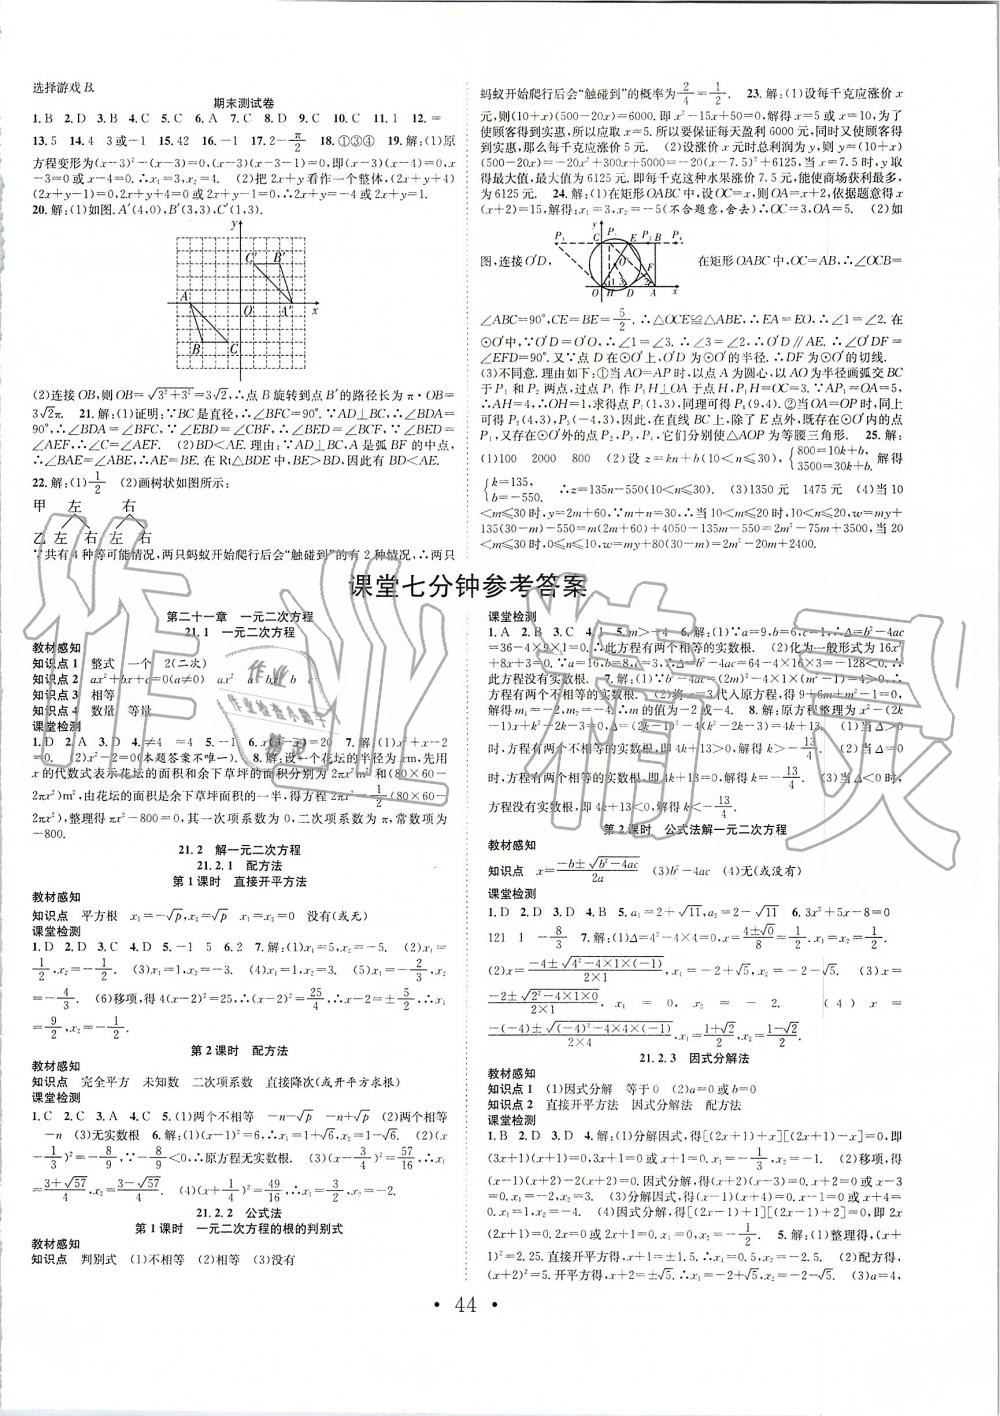 选择游戏 B.
期末测试卷
1. B 2. D 3. B 4. C 5. C 6. A 7. C 8. D 9. C 10. C 11. 1 12. =
13. 5 14. 4 3或-1 15. 42 16. -1 17. 2-π/2 18. ①③④ 19. 解:(1)原
方程变形为(x-3)²-(x-3)=0,(x-3)(x-3-1)=0,即(x-3)(x-4)=0,x-
3=0或x-4=0.∴x₁=3,x₂=4. (2)把2x+y看作一个整体,(2x+y+4)
(2x+y-1)=0,∴2x+y+4=0或2x+y-1=0,∴2x+y=-4或2x+y=1.
20. 解:(1)如图. A′(4,0),B′(3,3),C′(1,3).
y
C′ B′
A O A′ x
B C
(2)连接OB,则OB=√(3²+3²)=3√2,∴点B旋转到点B′的路径长为π·OB=
3√2π. 21. 解:(1)证明:∵BC是直径,∴∠BFC=90°.∵AD⊥BC,∴∠BDA=
90°,∴∠BDA=∠BFC.∵∠EBD=∠CBF,∴∠BED=∠C.∵∠BED=
∠AEF,∴∠C=∠AEF. (2)BD<AE.理由:∵AD⊥BC,A是弧BF的中点,
∴∠BAE=∠ABE,∴AE=BE.在Rt△BDE中,BE>BD,因此有BD<AE.
22. 解:(1)1/2 (2)画树状如图所示:
甲 左 右
乙 左 右 左 右
∵共有4种等可能情况,两只蚂蚁开始爬行后会“触碰到”的有2种情况,∴两只
蚂蚁开始爬行后会“触碰到”的概率为2/4=1/2. 23. 解:(1)设每千克应涨价x
元,则(10+x)(500-20x)=6000.即x²-15x+50=0.解得x=5或x=10,为了
使顾客得到实惠,所以应取x=5.所以要保证每天盈利6000元,同时又使顾客得
到实惠,那么每千克应涨价5元. (2)设涨价x元时总利润为y元,则y=(10+x)
(500-20x)=-20x²+300x+5000=-20(x-7.5)²+6125,当x=7.5时,y取
得最大值,最大值为6125元.即每千克这种水果涨价7.5元,能使商场获利最多,
为6125元. 24. 解:(1)在矩形OABC中,设OC=x,则OA=x+2,依据题意得x
(x+2)=15,解得:x₁=3,x₂=-5(不合题意,舍去)∴OC=3,OA=5. (2)如
图,连接O′D, 在矩形OABC中,OC=AB,∴∠OCB=
∠ABC=90°,CE=BE=5/2.∴△OCE≌△ABE,∴EA=EO,∴∠1=∠2.在
⊙O′中,∵O′D=O′O,∴∠1=∠3.∴∠3=∠2.∴O′D∥AE.∴∠O′DF=
∠EFD=90°.又∵点D在⊙O′上,O′D为⊙O′的半径.∴DF为⊙O′的切线.
(3)不同意.理由如下:①当AO=AP时,以点A为圆心,以AO为半径画弧交BC
于P₁和P₂两点,过点P₁作P₁H⊥OA于点H,P₁H=OC=3.∵AP₁=OA=5,
∴AH=4,∴OH=1,求得点P₁(1,3),同理可得P₂(9,4).②当OA=OP时,同上
可得P₃(4,3),P₄(-4,3),因此,在直线BC上,除了E点外,既存在⊙O′内的点
P₁,又存在⊙O′外的点P₂,P₃,P₄,它们分别使△AOP为等腰三角形. 25. 解:
(1)100 2000 800 (2)设z=kn+b(10<n≤30).{800=10k+b, 3500=30k+b. 解得
{k=135, b=-550. ∴z=135n-550(10<n≤30). (3)1350元 1475元 (4)当10
<m≤30时,y=2m+60.∵m+n=30,∴当10<m≤30时,10≤n<20,w=my+
135(30-m)-550=m(2m+60)+4050-135m-550=2m²-75m+3500,当20
<m≤30时,0≤n<10,w=my+80(30-m)=2m²-20m+2400.
课堂七分钟参考答案
第二十一章 一元二次方程
21.1 一元二次方程
教材感知
知识点1 整式 一个 2(二次)
知识点2 ax²+bx+c=0(a≠0) ax² a bx b c
知识点3 相等
知识点4 数量 等量
课堂检测
1. D 2. A 3. D 4. ≠4 =4 5. -1 6. x(x-x)=20 7. 解:(1)x²+x-2
=0. (2)x²-2=0(本题答案不唯一). 8. 解:设一个花坛的半径为x m,先用
x的代数式表示花坛的面积和余下草坪的面积分别为2πx²m²和(80×60-
2πx²)m²,由花坛的面积是余下草坪面积的一半,得方程2πx²=1/2(80×60-
2πx²),整理得πx²-800=0,其一次项系数为0,二次项系数为π,常数项为
-800.
21.2 解一元二次方程
21.2.1 配方法
第1课时 直接开平方法
教材感知
知识点 平方根 x₁=-√p,x₂=√p x₁=x₂=0 没有(或无)
课堂检测
1. D 2. D 3. C 4. D 5. -1 5 6. 2 7. 解:(1)x₁=5,x₂=-5. (2)x₁=
1/2,x₂=-1/2. (3)x₁=1,x₂=-3. (4)x₁=3,x₂=1. (5)x₁=-1/3,x₂=
-4/3. (6)移项,得4(x-2)²=25,∴(x-2)²=25/4,∴x-2=±5/2,∴x₁
=9/2,x₂=-1/2.
第2课时 配方法
教材感知
知识点 完全平方 未知数 二次项系数 直接降次(或开平方求根)
课堂检测
1. C 2. C 3. A 4. C 5. (1)两个不相等 -n-√p -n+√p (2)两个相等
-n (3)无实数根 6. 解:(1)(x-1)²=6,∴x₁=1+√6,x₂=1-√6. (2)(x-
1/3)²=-8/9,∵-8/9<0,∴原方程无实数根. (3)(x-3/4)²=57/16,∴x₁
=(3+√57)/4,x₂=(3-√57)/4. (4)(x+1/4)²=49/16,∴x₁=3/2,x₂=-2.
21.2.2 公式法
第1课时 一元二次方程的根的判别式
教材感知
知识点 判别式 (1)不相等 (2)相等 (3)没有
课堂检测
1. A 2. B 3. C 4. 1 5. m>-4 6. 解:(1)∵a=9,b=6,c=1,∴Δ=b²-4ac
=36-4×9×1=0.∴此方程有两个相等的实数根. (2)化为一般形式为16x²
+8x+3=0.∵a=16,b=8,c=3,∴Δ=b²-4ac=64-4×16×3=-128<0,∴此
方程没有实数根. 7. 解:(1)∵b²-4ac=m²-4×1×(-1)=m²+4>0,∴方程
有两个不相等的实数根. (2)将x=3代入原方程,得9+6m+m²-1=0,
解得m₁=-2,m₂=-4,∴m的值为-2或-4. 8. 解:原方程整理为x²-(2k
-1)x+k²-3=0,∴Δ=(2k-1)²-4(k²-3)=4k+13. (1)当Δ>0
时,方程有两个不相等的实数根,即4k+13>0,解得k>-13/4. (2)当Δ=0
时,方程有两个相等的实数根,即4k+13=0,解得k=-13/4. (3)当Δ<0时,
方程没有实数根,即4k+13<0,解得k<-13/4.
第2课时 公式法解一元二次方程
教材感知
知识点 x=(-b±√(b²-4ac))/2a (3)b²-4ac (4)无(或没有)
课堂检测
1. D 2. D 3. D 4. B 5. a₁=2+√11,a₂=2-√11 6. 3x²+5x-8=0
121 1 -8/3 7. 解:(1)Δ=4²-4×4=0,x=(4±√0)/8=1/2,x₁=x₂=1/2.
(2)x=(-4±√(4²-4×1×(-1)))/(2×1),x₁=-2+√5,x₂=-2-√5. (3)x=
(-2±√(2²-4×1×0))/(2×1),x₁=0,x₂=-2. (4)x=
(-(-4)±√((-4)²-4×4×(-1)))/(2×4),x₁=(1+√2)/2,x₂=(1-√2)/2.
21.2.3 因式分解法
教材感知
知识点1 (1)因式分解 等于0 (2)a=0或b=0
知识点2 直接开平方法 因式分解法 配方法
课堂检测
1. B 2. D 3. D 4. 解:(1)分解因式,得[(2x+1)+x][(2x+1)-x]=0,即
(3x+1)(x+1)=0,3x+1=0或x+1=0.∴x₁=-1/3,x₂=-1. (2)移项,得
(x-1)(x+2)-2(x+2)=0,因式分解,得(x+2)(x-3)=0.∴x+2=0或x-
3=0.x₁=-2,x₂=3. (3)分解因式,得(x-1)(x+4)=0.x-1=0或x+4=
0.∴x₁=1,x₂=-4. (4)因式分解,得[(2x-1)+1][(2x-1)+2]=0,即2x
(2x+1)=0.∴2x=0或2x+1=0.∴x₁=0,x₂=-1/2. 5. 解:(1)整理,得
x²=2.25.直接开平方,得x=±1.5.∴x₁=1.5,x₂=-1.5. (2)配方,得
(x+2)²=5.开平方,得x+2=±√5.∴x₁=-2+√5,x₂=-2-√5. (3)a=4,
· 44 ·